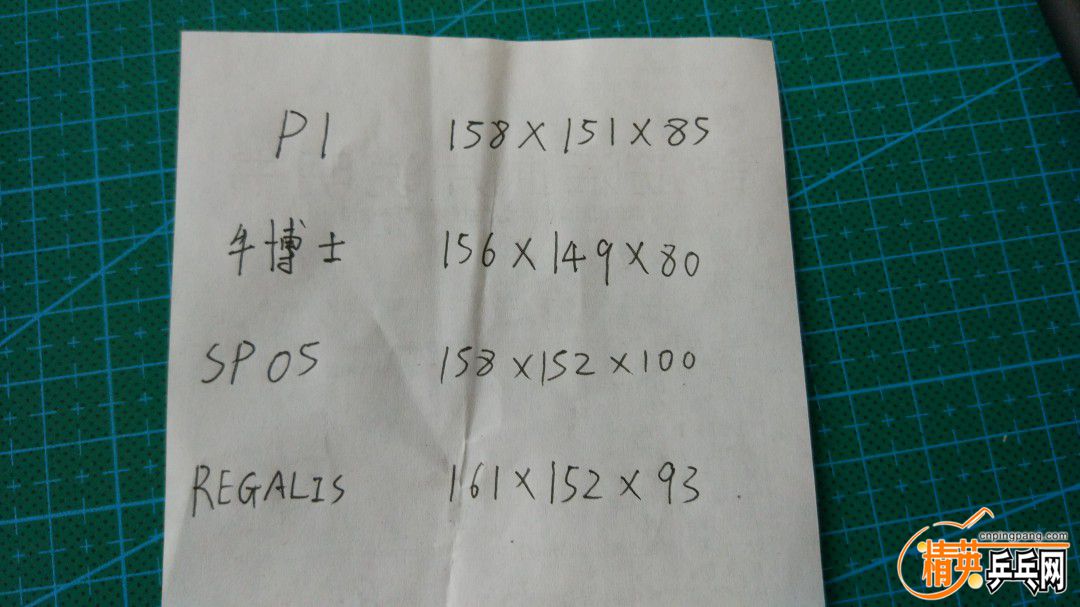 P1 158×151×85
牛博士 156×149×80
SP05 158×152×100
REGALIS 161×152×93
cnpingpang.com
精英乒乓网